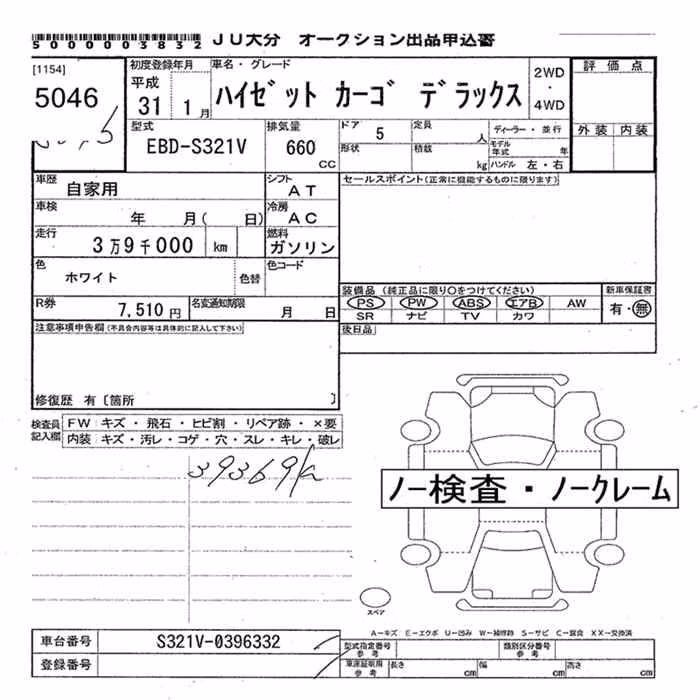 5000003832 JU大分 オークション出品申込書
[1154]
5046
初度登録年月
平成
31 1月
車名・グレード
ハイゼット カーゴ デラックス
2WD
・
4WD
評価点
外装 内装
型式
EBD-S321V
排気量
660
CC
ドア 5
定員 人
形状
積載 kg
ディーラー・並行
モデル年式 年
ハンドル 左・右
車歴 自家用
シフト AT
セールスポイント(正常に機能するものに限ります)
車検 年 月( 日)
冷房 AC
走行 3万9千000 km
燃料 ガソリン
色 ホワイト
色替
色コード
装備品 (純正品に限り〇をつけてください)
新車保証書
PS PW ABS エアB AW
有・無
SR ナビ TV カワ
R券 7,510円
名変通知期限 月 日
注意事項申告欄(不具合内容等は具体的に記入して下さい)
後日品
修復歴 有〔箇所 〕
検査員記入欄
FW キズ・飛石・ヒビ割・リペア跡・×要
内装 キズ・汚レ・コゲ・穴・スレ・キレ・破レ
39369
ノー検査・ノークレーム
スペア
A-キズ E-エクボ U-凹み W-補修跡 S-サビ C-腐食 XX-交換済
車台番号 S321V-0396332
登録番号
型式指定番号 参考
類別区分番号 参考
車庫証明用 参考
長さ cm 幅 cm 高さ cm